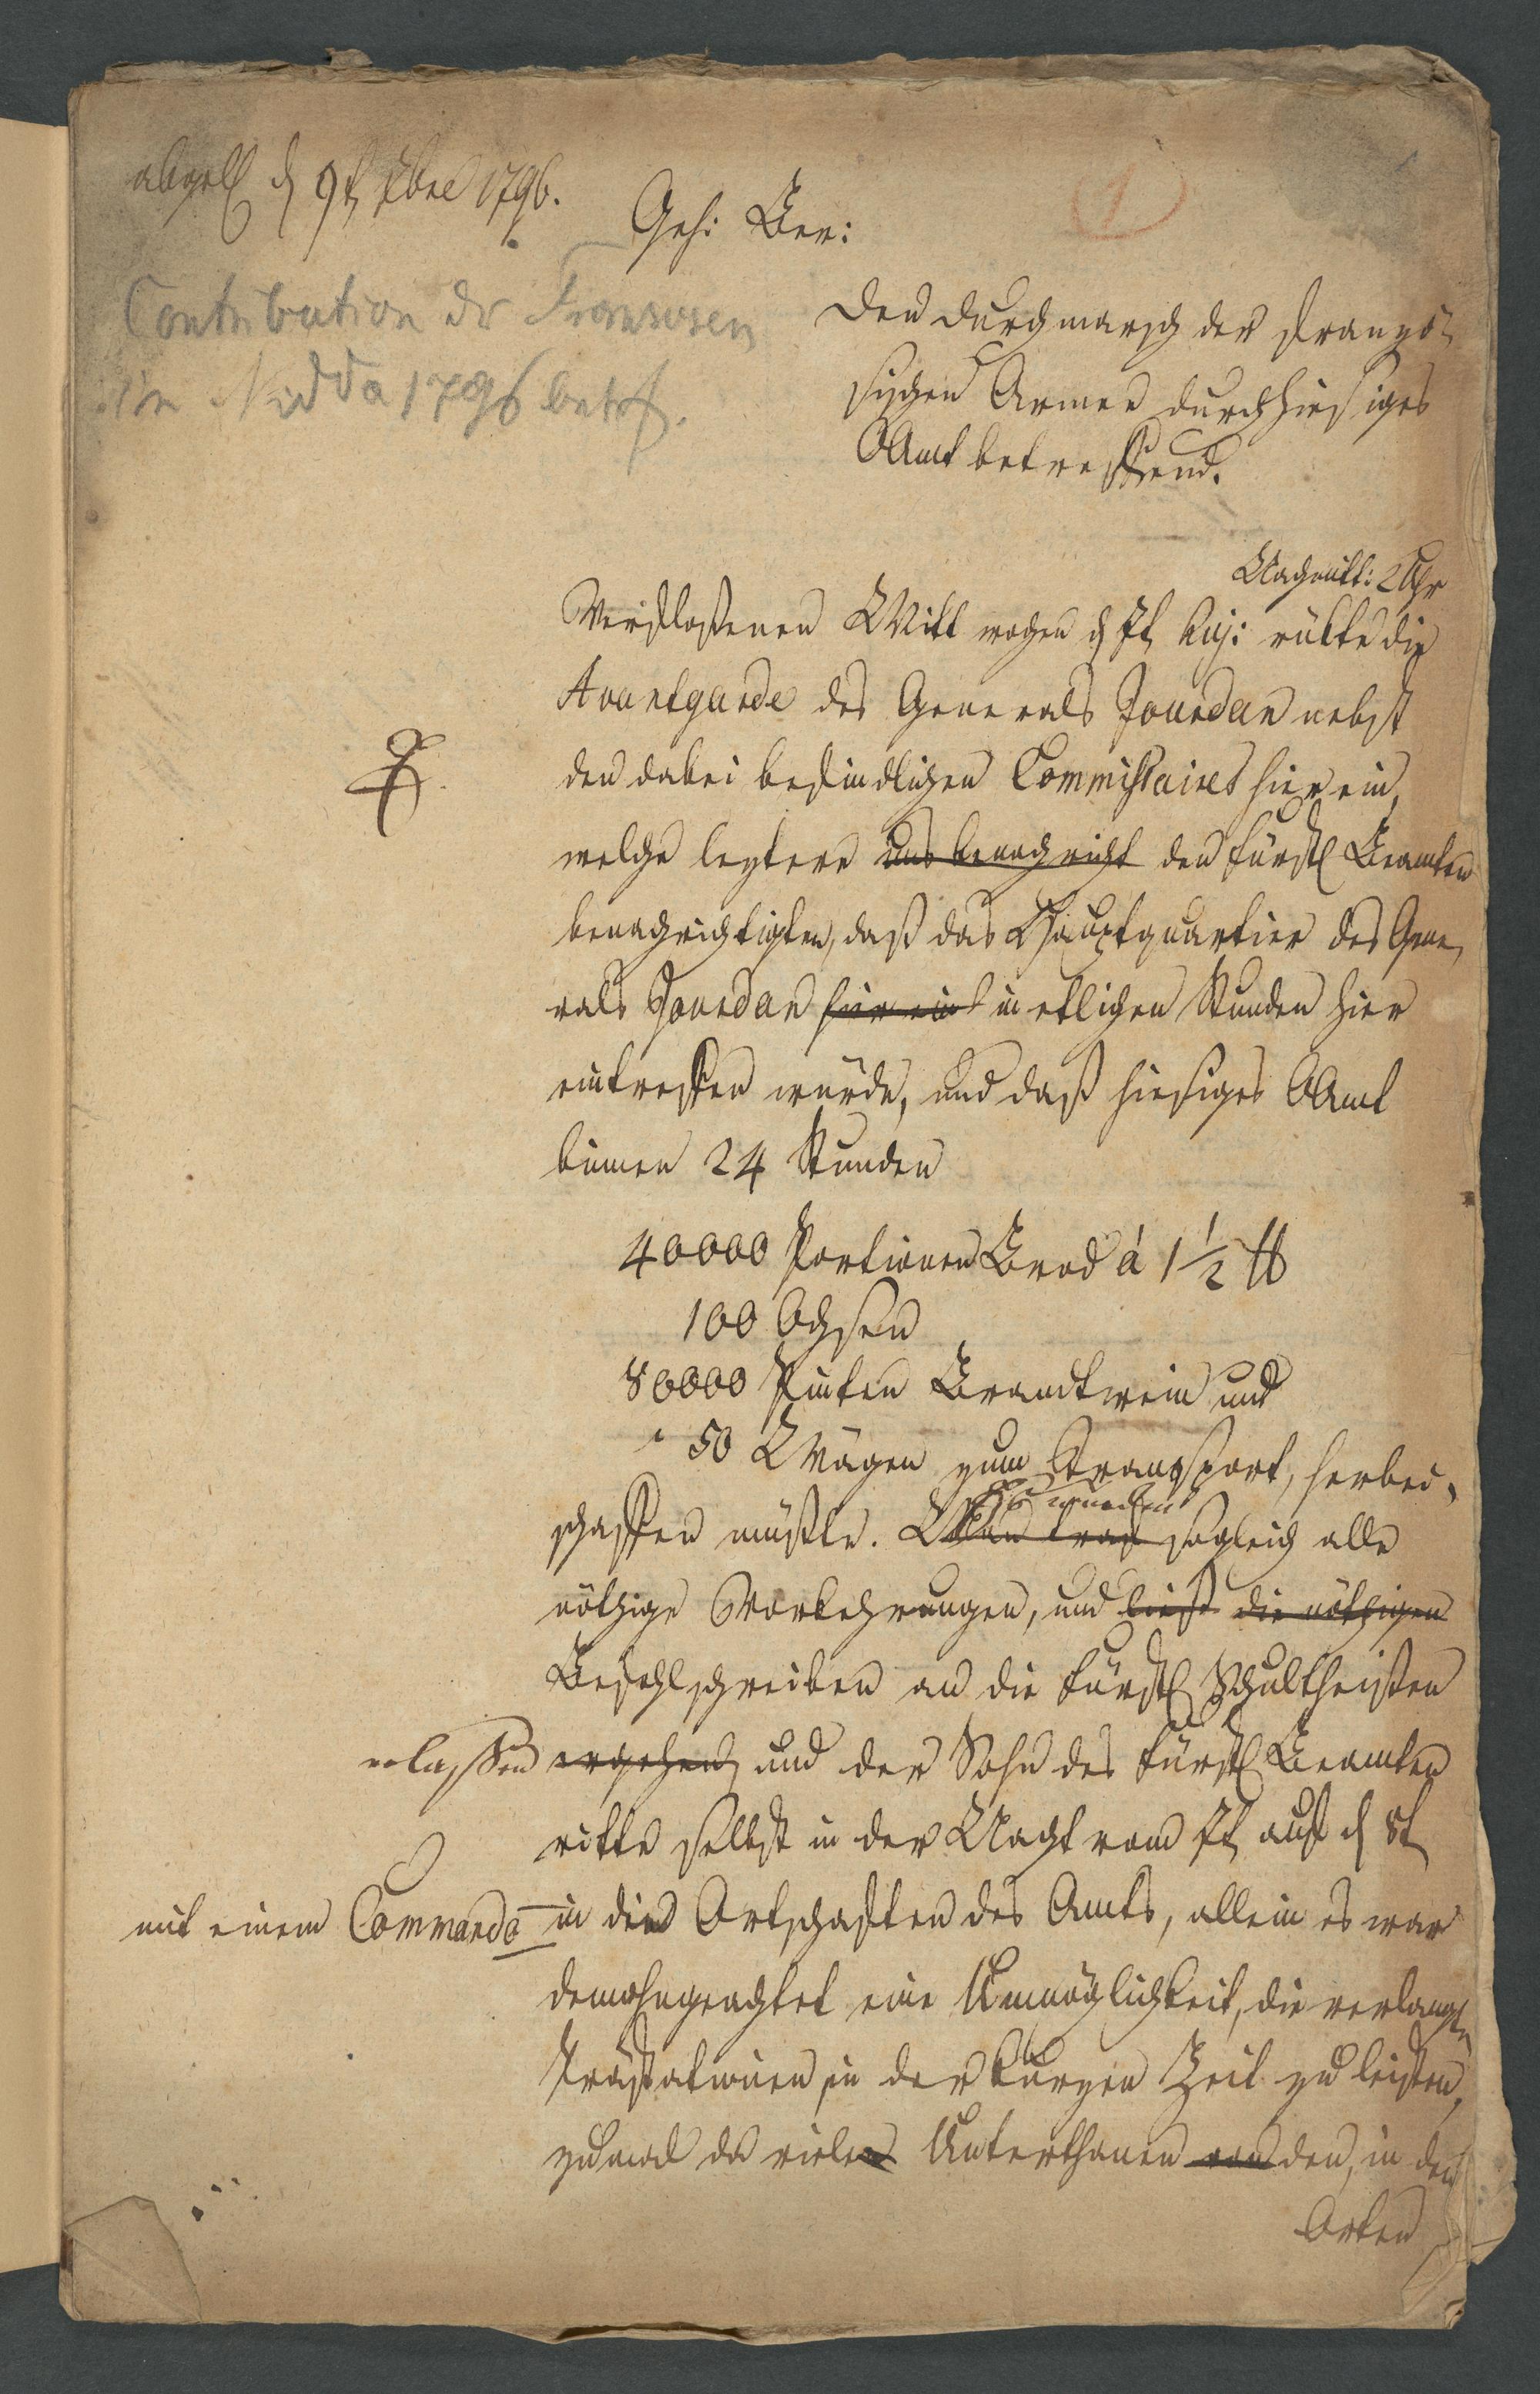 abgell d 9t 7bre 1796.
Geh: Ber:
1
Contribution der Franzosen
in Nidda 1796 betrf.
Den Durchmarsch der Franzö-
sischen Armee durch hiesiges
OAmt betreffend.
Nachmitt: 2 Uhr
Verfloßenen Mittwochen d 7t huj: rükte die
Avantgarde des Generals Jourdan nebst
den dabei befindlichen Commissaires hier ein,
welche leztere uns benachricht den Fürstl Beamten
benachrichtigten, daß das Hauptquartier des Gene-
rals Jourdan hier ein in etlichen Stunden hier
eintreffen würde, und daß hiesiges OAmt
binnen 24 Stunden
40000 Portionen Brod á 1 1/2 ℔
100 Ochsen
80000 Pinten Brandtwein und
50 Wägen zum Transport, herbei-
schaffen müßte. Es wurden
Man traf sogleich alle
nöthige Vorkehrungen, und ließ die nöthigen
Befehlschreiben an die Fürstl Schultheißen
erlassen ergehen, und der Sohn des Fürstl Beamten
ritte selbst in der Nacht vom 7t auf d 8t
mit einem Commando in die Ortschaften des Amts, allein es war
demohngeachtet eine Unmöglichkeit, die verlangte
Prästationen in der kurzen Zeit zu leisten,
zumal da viele Unterthanen von den, in den
Orten